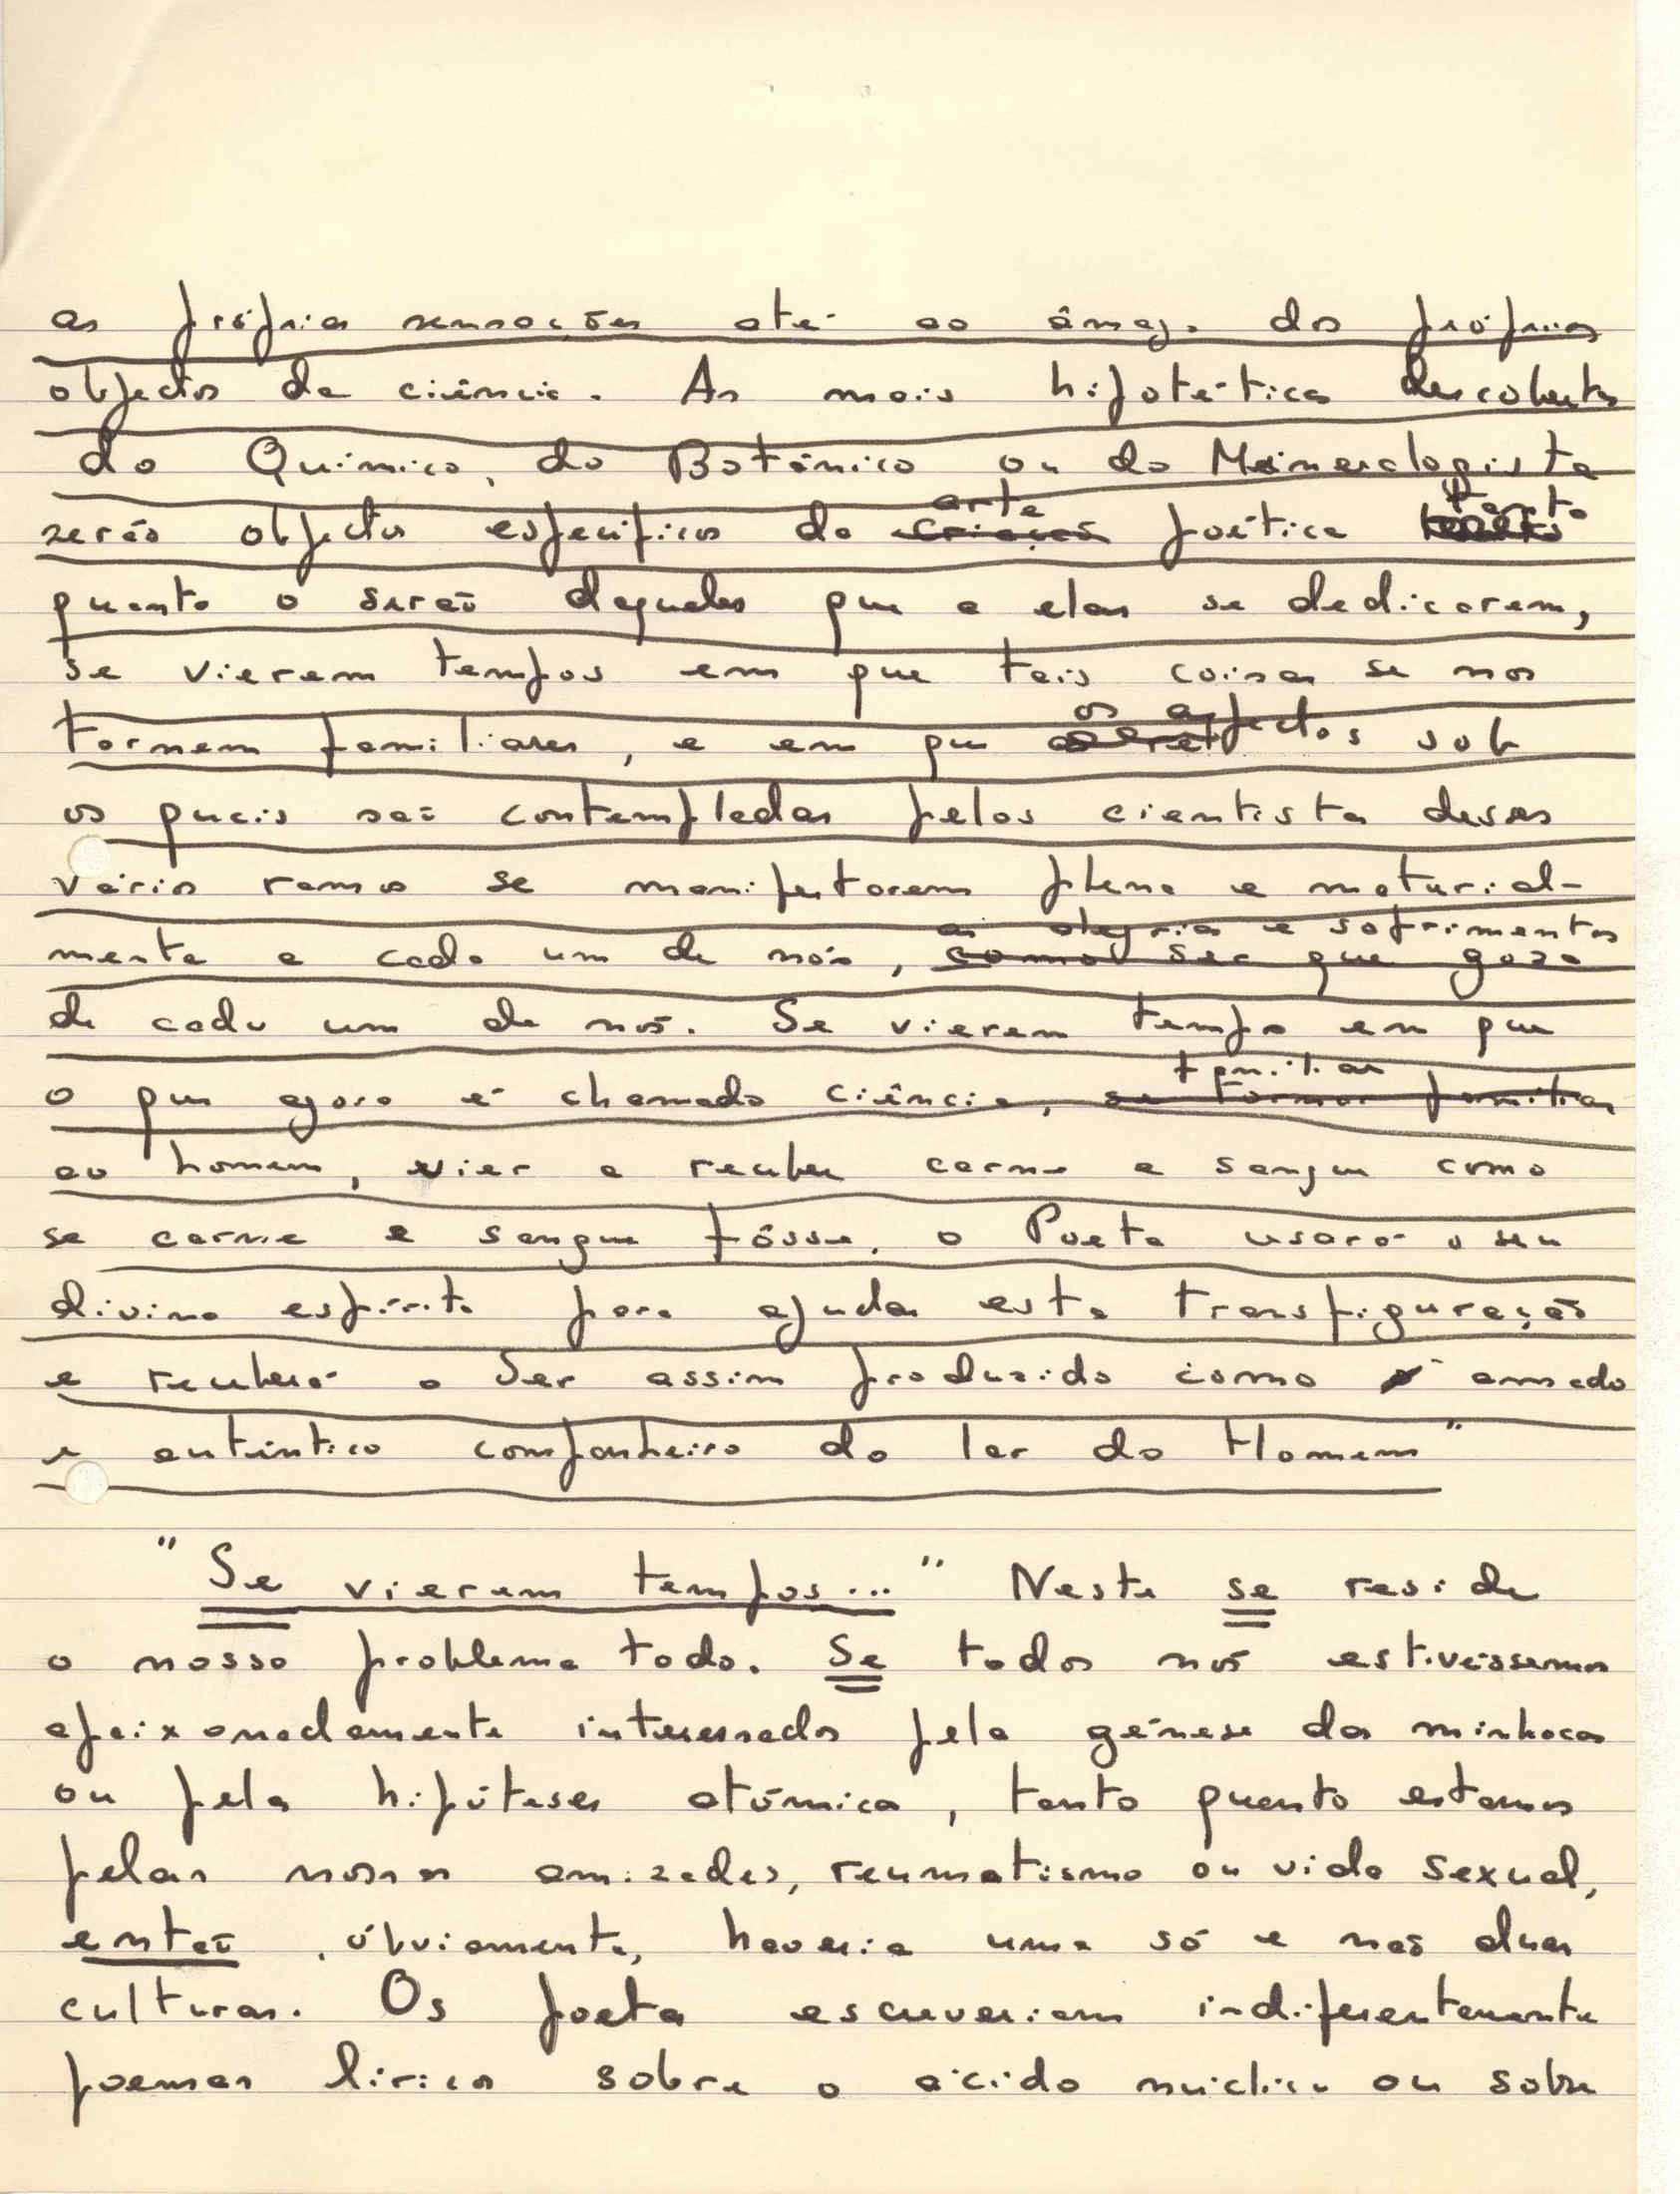 as próprias sensações até ao âmago dos próprios
objectos da ciência. As mais hipotéticas descobertas
do Químico, do Botânico ou do Mineralogista
arte tanto
serão objectos específicos da criação poética
quanto o serão daqueles que a elas se dedicarem,
se vierem tempos em que tais coisas se nos
os aspectos
tornem familiares, e em que sob
os quais são contempladas pelos cientistas desses
vários ramos se manifestarem plena e material-
as alegrias e sofrimentos
mente a cada um de nós, como ser que goza
de cada um de nós. Se vierem tempos em que
familiar
o que agora é chamado ciência, se tornar familiar
ao homem, vier a receber carne e sangue como
se carne e sangue fôsse, o Poeta usará o seu
divino espírito para ajudar esta transfiguração
e receberá o Ser assim produzido como amado
e autêntico companheiro do lar do Homem"
"Se vierem tempos..." Neste se reside
o nosso problema todo. Se todos nós estivéssemos
apaixonadamente interessados pela génese das minhocas
ou pelas hipóteses atómicas, tanto quanto estamos
pelas nossas amizades, reumatismo ou vida sexual,
então, óbviamente, haveria uma só e não duas
culturas. Os poetas escreveriam indiferentemente
poemas líricos sobre o ácido nucleico ou sobre